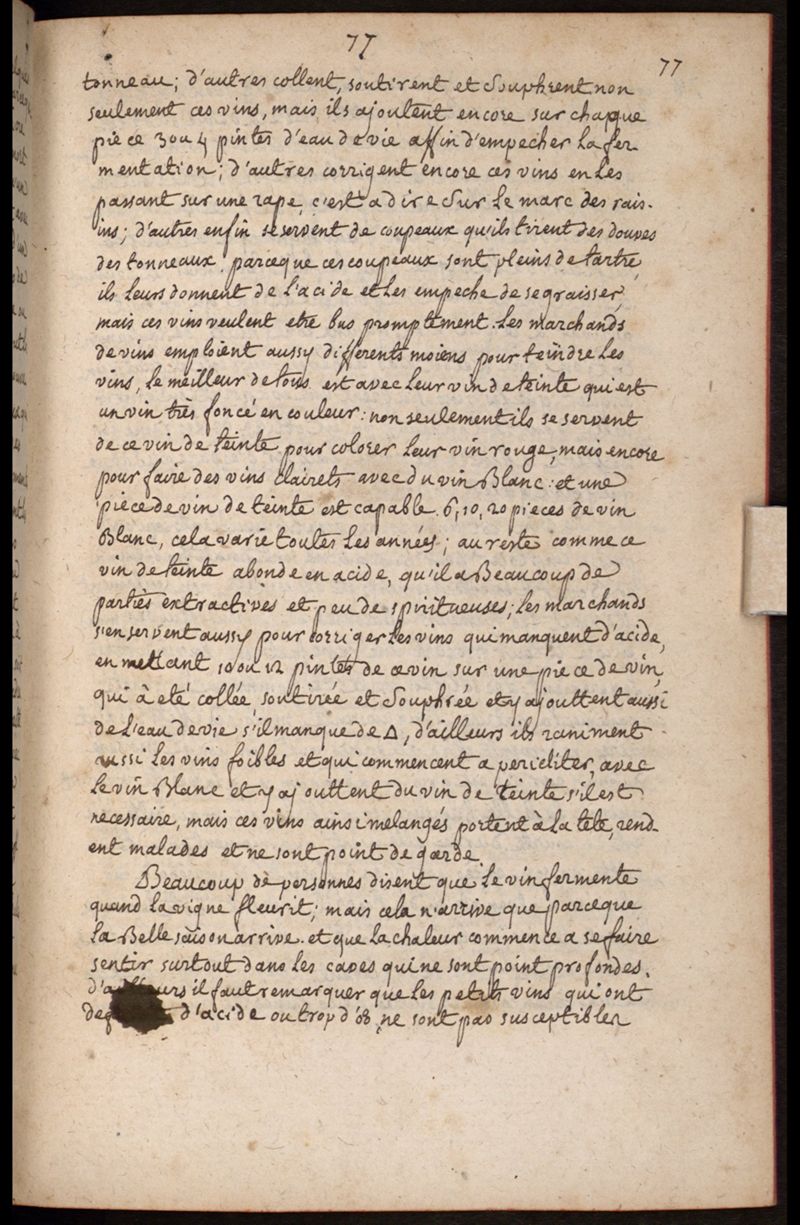 77
77
tonneau; d'autres collent, soutirent et Souphrent non
seulement ces vins, mais ils ajoutent encore sur chaque
piece 3 ou 4 pintes d'eau de vie affin d'empecher la fer
mentation; d'autres corrigent encore ces vins en les
passant sur une rape, c'est a dire Sur le marc des rais-
ins; d'autres enfin se servent de coupeaux qu'ils tirent des douves
des tonneaux, parceque ces coupeaux sont pleins de tartre
ils leurs donnent de l'acide et les empeche de se graisser,
mais ces vins veulent etre bus promptement. Les marchands
de vins emploient aussy differents moiens pour teindre les
vins, le meilleur de tous est avec leur vin de teinte qui est
un vin très foncé en couleur: non seulement ils se servent
de ce vin de teinte pour colorer leur vin rouge, mais encore
pour faire des vins clairets avec du vin Blanc: et une
piece de vin de teinte est capable 6, 10, 20 pieces de vin
Blanc, cela varie toutes les années; au reste comme ce
vin de teinte abonde en acide, qu'il a Beaucoup de
parties extractives et peu de spiritueuses; les marchands
s'en servent aussy pour corriger les vins qui manquent d'acide,
en mettant 10 ou 12 pintes de ce vin sur une piece de vin
qui à eté collée, soutirée et Souphrée et y ajouttent aussi
de l'eau de vie s'il manque de △, d'ailleurs ils raniment
aussi les vins foibles et qui commencent a pericliter, avec
le vin Blanc et y ajouttent du vin de teinte s'il est
necessaire, mais ces vins ainsi melangés portent à la tete, rend
ent malades et ne sont point de garde.
Beaucoup de personnes disent que le vin fermente
quand la vigne fleurit; mais cela n'arrive que parceque
la Belle saison arrive. et que la chaleur commence a se faire
sentir surtout dans les caves qui ne sont point profondes.
d'ailleurs il faut remarquer que les petits vins qui ont
d'acide ou trop d' ne sont pas susceptibles